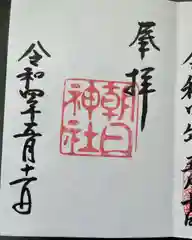 奉拝
朝日神社
令和四年五月十一日